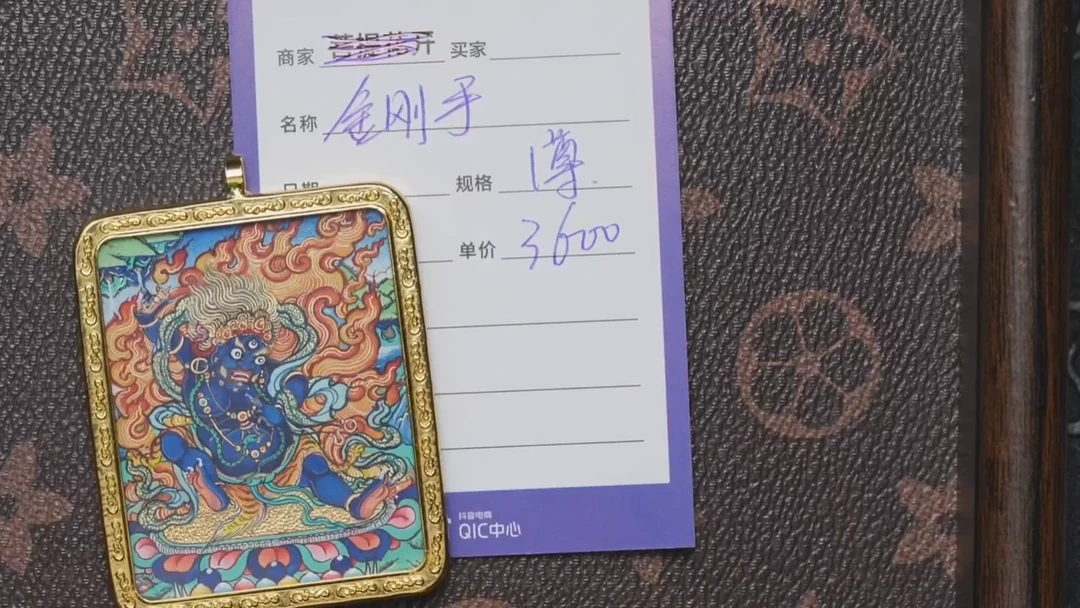 商家 菩提花开 买家
名称 金刚手
日期 规格 1尊
单价 3600
抖音电商
QIC中心